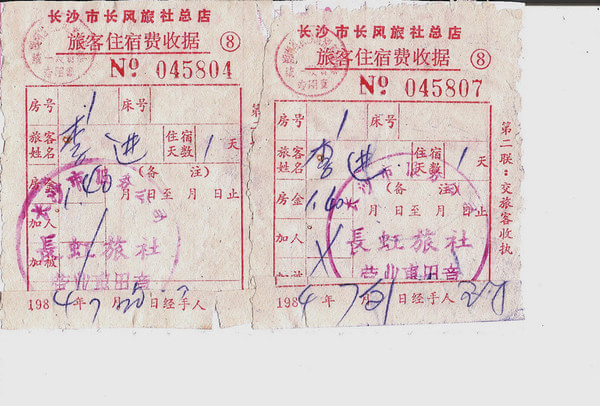 长沙市长风旅社总店
旅客住宿费收据 ⑧
№ 045804
房号 1 床号
旅客姓名 李进 住宿天数 1 天
房金 1.60 (备注)
月 日至 月 日止
加人
加被
长虹旅社
营业专用章
1984年7月20日经手人
长沙市长风旅社总店
旅客住宿费收据 ⑧
№ 045807
房号 1 床号
旅客姓名 李进 住宿天数 1 天
房金 1.60 (备注)
月 日至 月 日止
加人
長虹旅社
营业专用章
1984年7月21日经手人
第二联：交旅客收执